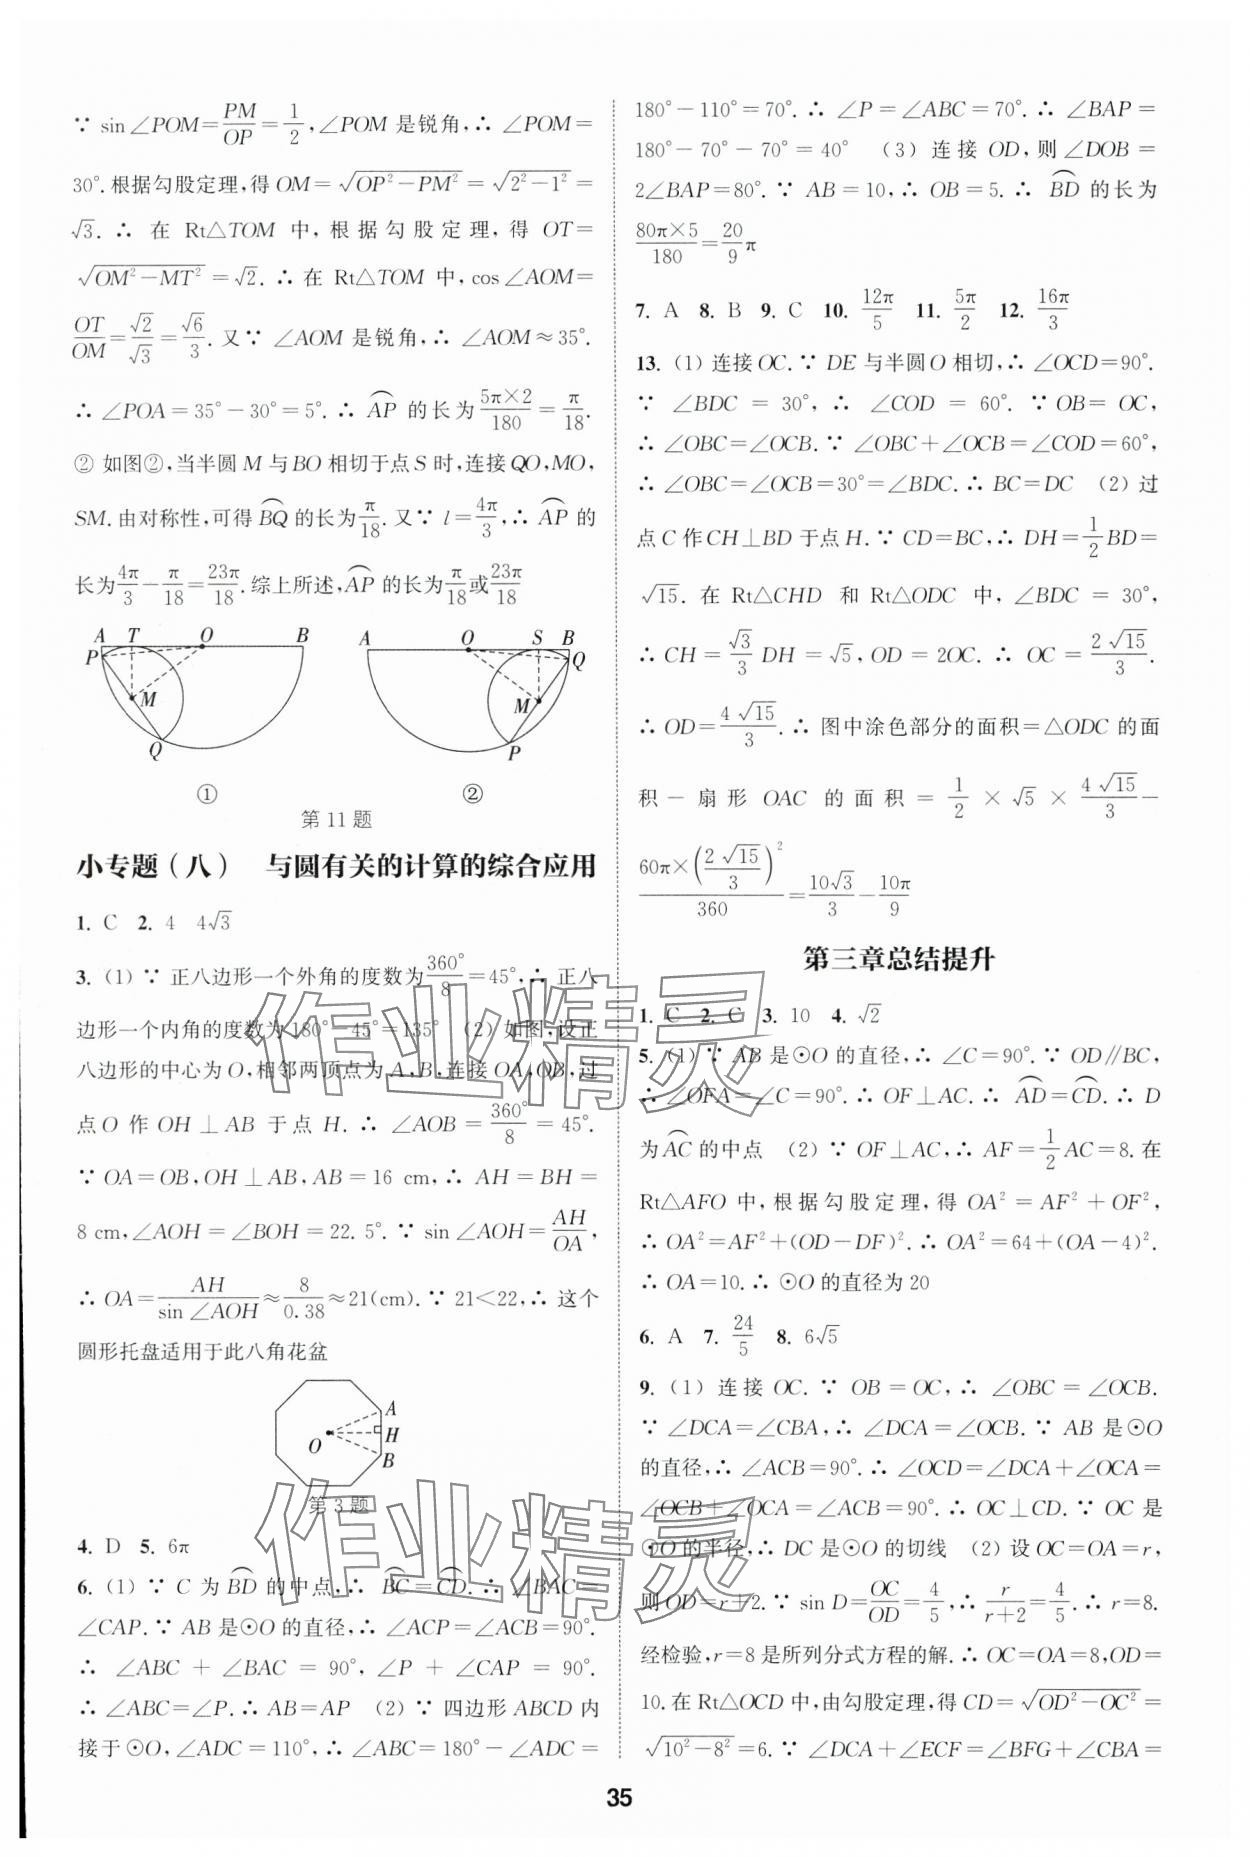 ∵ sin∠POM=PM/OP=1/2,∠POM 是锐角,∴ ∠POM=
30°.根据勾股定理,得 OM=√(OP²-PM²)=√(2²-1²)=
√3. ∴ 在 Rt△TOM 中,根据勾股定理,得 OT=
√(OM²-MT²)=√2. ∴ 在 Rt△TOM 中,cos∠AOM=
OT/OM=√2/√3=√6/3. 又∵ ∠AOM 是锐角,∴ ∠AOM≈35°.
∴ ∠POA=35°-30°=5°. ∴ ⌒AP 的长为 5π×2/180=π/18.
② 如图②,当半圆 M 与BO 相切于点 S 时,连接 QO,MO,
SM.由对称性,可得⌒BQ 的长为π/18. 又∵ l=4π/3,∴ ⌒AP 的
长为4π/3-π/18=23π/18.综上所述,⌒AP 的长为π/18或23π/18
A T O B P M Q
①
A O S B Q M P
②
第 11 题
小专题(八) 与圆有关的计算的综合应用
1. C 2. 4 4√3
3. (1) ∵ 正八边形一个外角的度数为360°/8=45°,∴ 正八
边形一个内角的度数为 180°-45°=135° (2) 如图,设正
八边形的中心为 O,相邻两顶点为 A,B,连接 OA,OB,过
点 O 作 OH⊥AB 于点 H. ∴ ∠AOB=360°/8=45°.
∵ OA=OB,OH⊥AB,AB=16 cm,∴ AH=BH=
8 cm,∠AOH=∠BOH=22.5°. ∵ sin∠AOH=AH/OA,
∴ OA=AH/sin∠AOH≈8/0.38≈21(cm). ∵ 21<22,∴ 这个
圆形托盘适用于此八角花盆
A O H B
第 3 题
4. D 5. 6π
6. (1) ∵ C 为⌒BD 的中点,∴ ⌒BC=⌒CD. ∴ ∠BAC=
∠CAP. ∵ AB 是⊙O 的直径,∴ ∠ACP=∠ACB=90°.
∴ ∠ABC+∠BAC=90°,∠P+∠CAP=90°.
∴ ∠ABC=∠P. ∴ AB=AP (2) ∵ 四边形 ABCD 内
接于⊙O,∠ADC=110°,∴ ∠ABC=180°-∠ADC=
180°-110°=70°. ∴ ∠P=∠ABC=70°. ∴ ∠BAP=
180°-70°-70°=40° (3) 连接 OD,则∠DOB=
2∠BAP=80°. ∵ AB=10,∴ OB=5. ∴ ⌒BD 的长为
80π×5/180=20/9π
7. A 8. B 9. C 10. 12π/5 11. 5π/2 12. 16π/3
13. (1) 连接 OC. ∵ DE 与半圆 O 相切,∴ ∠OCD=90°.
∵ ∠BDC=30°,∴ ∠COD=60°. ∵ OB=OC,
∴ ∠OBC=∠OCB. ∵ ∠OBC+∠OCB=∠COD=60°,
∴ ∠OBC=∠OCB=30°=∠BDC. ∴ BC=DC (2) 过
点 C 作 CH⊥BD 于点 H. ∵ CD=BC,∴ DH=1/2BD=
√15. 在 Rt△CHD 和 Rt△ODC 中,∠BDC=30°,
∴ CH=√3/3 DH=√5,OD=2OC. ∴ OC=2√15/3.
∴ OD=4√15/3. ∴ 图中涂色部分的面积=△ODC 的面
积-扇形 OAC 的面积=1/2×√5×4√15/3-
60π×(2√15/3)²/360=10√3/3-10π/9
第三章总结提升
1. C 2. C 3. 10 4. √2
5. (1) ∵ AB 是⊙O 的直径,∴ ∠C=90°. ∵ OD∥BC,
∴ ∠OFA=∠C=90°. ∴ OF⊥AC. ∴ ⌒AD=⌒CD. ∴ D
为⌒AC 的中点 (2) ∵ OF⊥AC,∴ AF=1/2AC=8. 在
Rt△AFO 中,根据勾股定理,得 OA²=AF²+OF²,
∴ OA²=AF²+(OD-DF)². ∴ OA²=64+(OA-4)².
∴ OA=10. ∴ ⊙O 的直径为 20
6. A 7. 24/5 8. 6√5
9. (1) 连接 OC. ∵ OB=OC,∴ ∠OBC=∠OCB.
∵ ∠DCA=∠CBA,∴ ∠DCA=∠OCB. ∵ AB 是⊙O
的直径,∴ ∠ACB=90°. ∴ ∠OCD=∠DCA+∠OCA=
∠OCB+∠OCA=∠ACB=90°. ∴ OC⊥CD. ∵ OC 是
⊙O 的半径,∴ DC 是⊙O 的切线 (2) 设 OC=OA=r,
则 OD=r+2. ∵ sin D=OC/OD=4/5,∴ r/(r+2)=4/5. ∴ r=8.
经检验,r=8 是所列分式方程的解. ∴ OC=OA=8,OD=
10. 在 Rt△OCD 中,由勾股定理,得 CD=√(OD²-OC²)=
√(10²-8²)=6. ∵ ∠DCA+∠ECF=∠BFG+∠CBA=
35
作业精灵
作业精灵